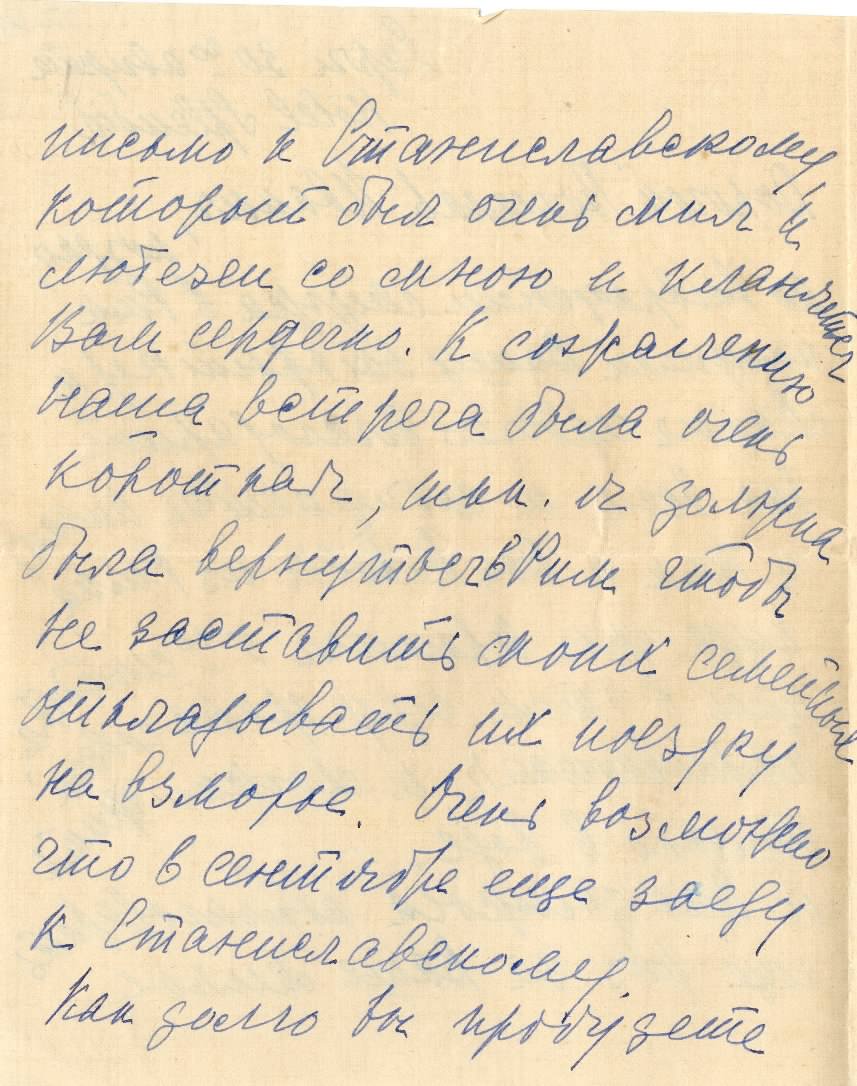 письмо к Станиславскому,
который был очень мил и
любезен со мною и кланяется
Вам сердечно. К сожалению
наша встреча была очень
короткая, т.к. я должна
была вернуться в Рим чтобы
не заставить моих семейных
откладывать их поездку
на взморье. Очень возможно
что в сентябре еще заеду
к Станиславскому.
Как долго Вы пробудете